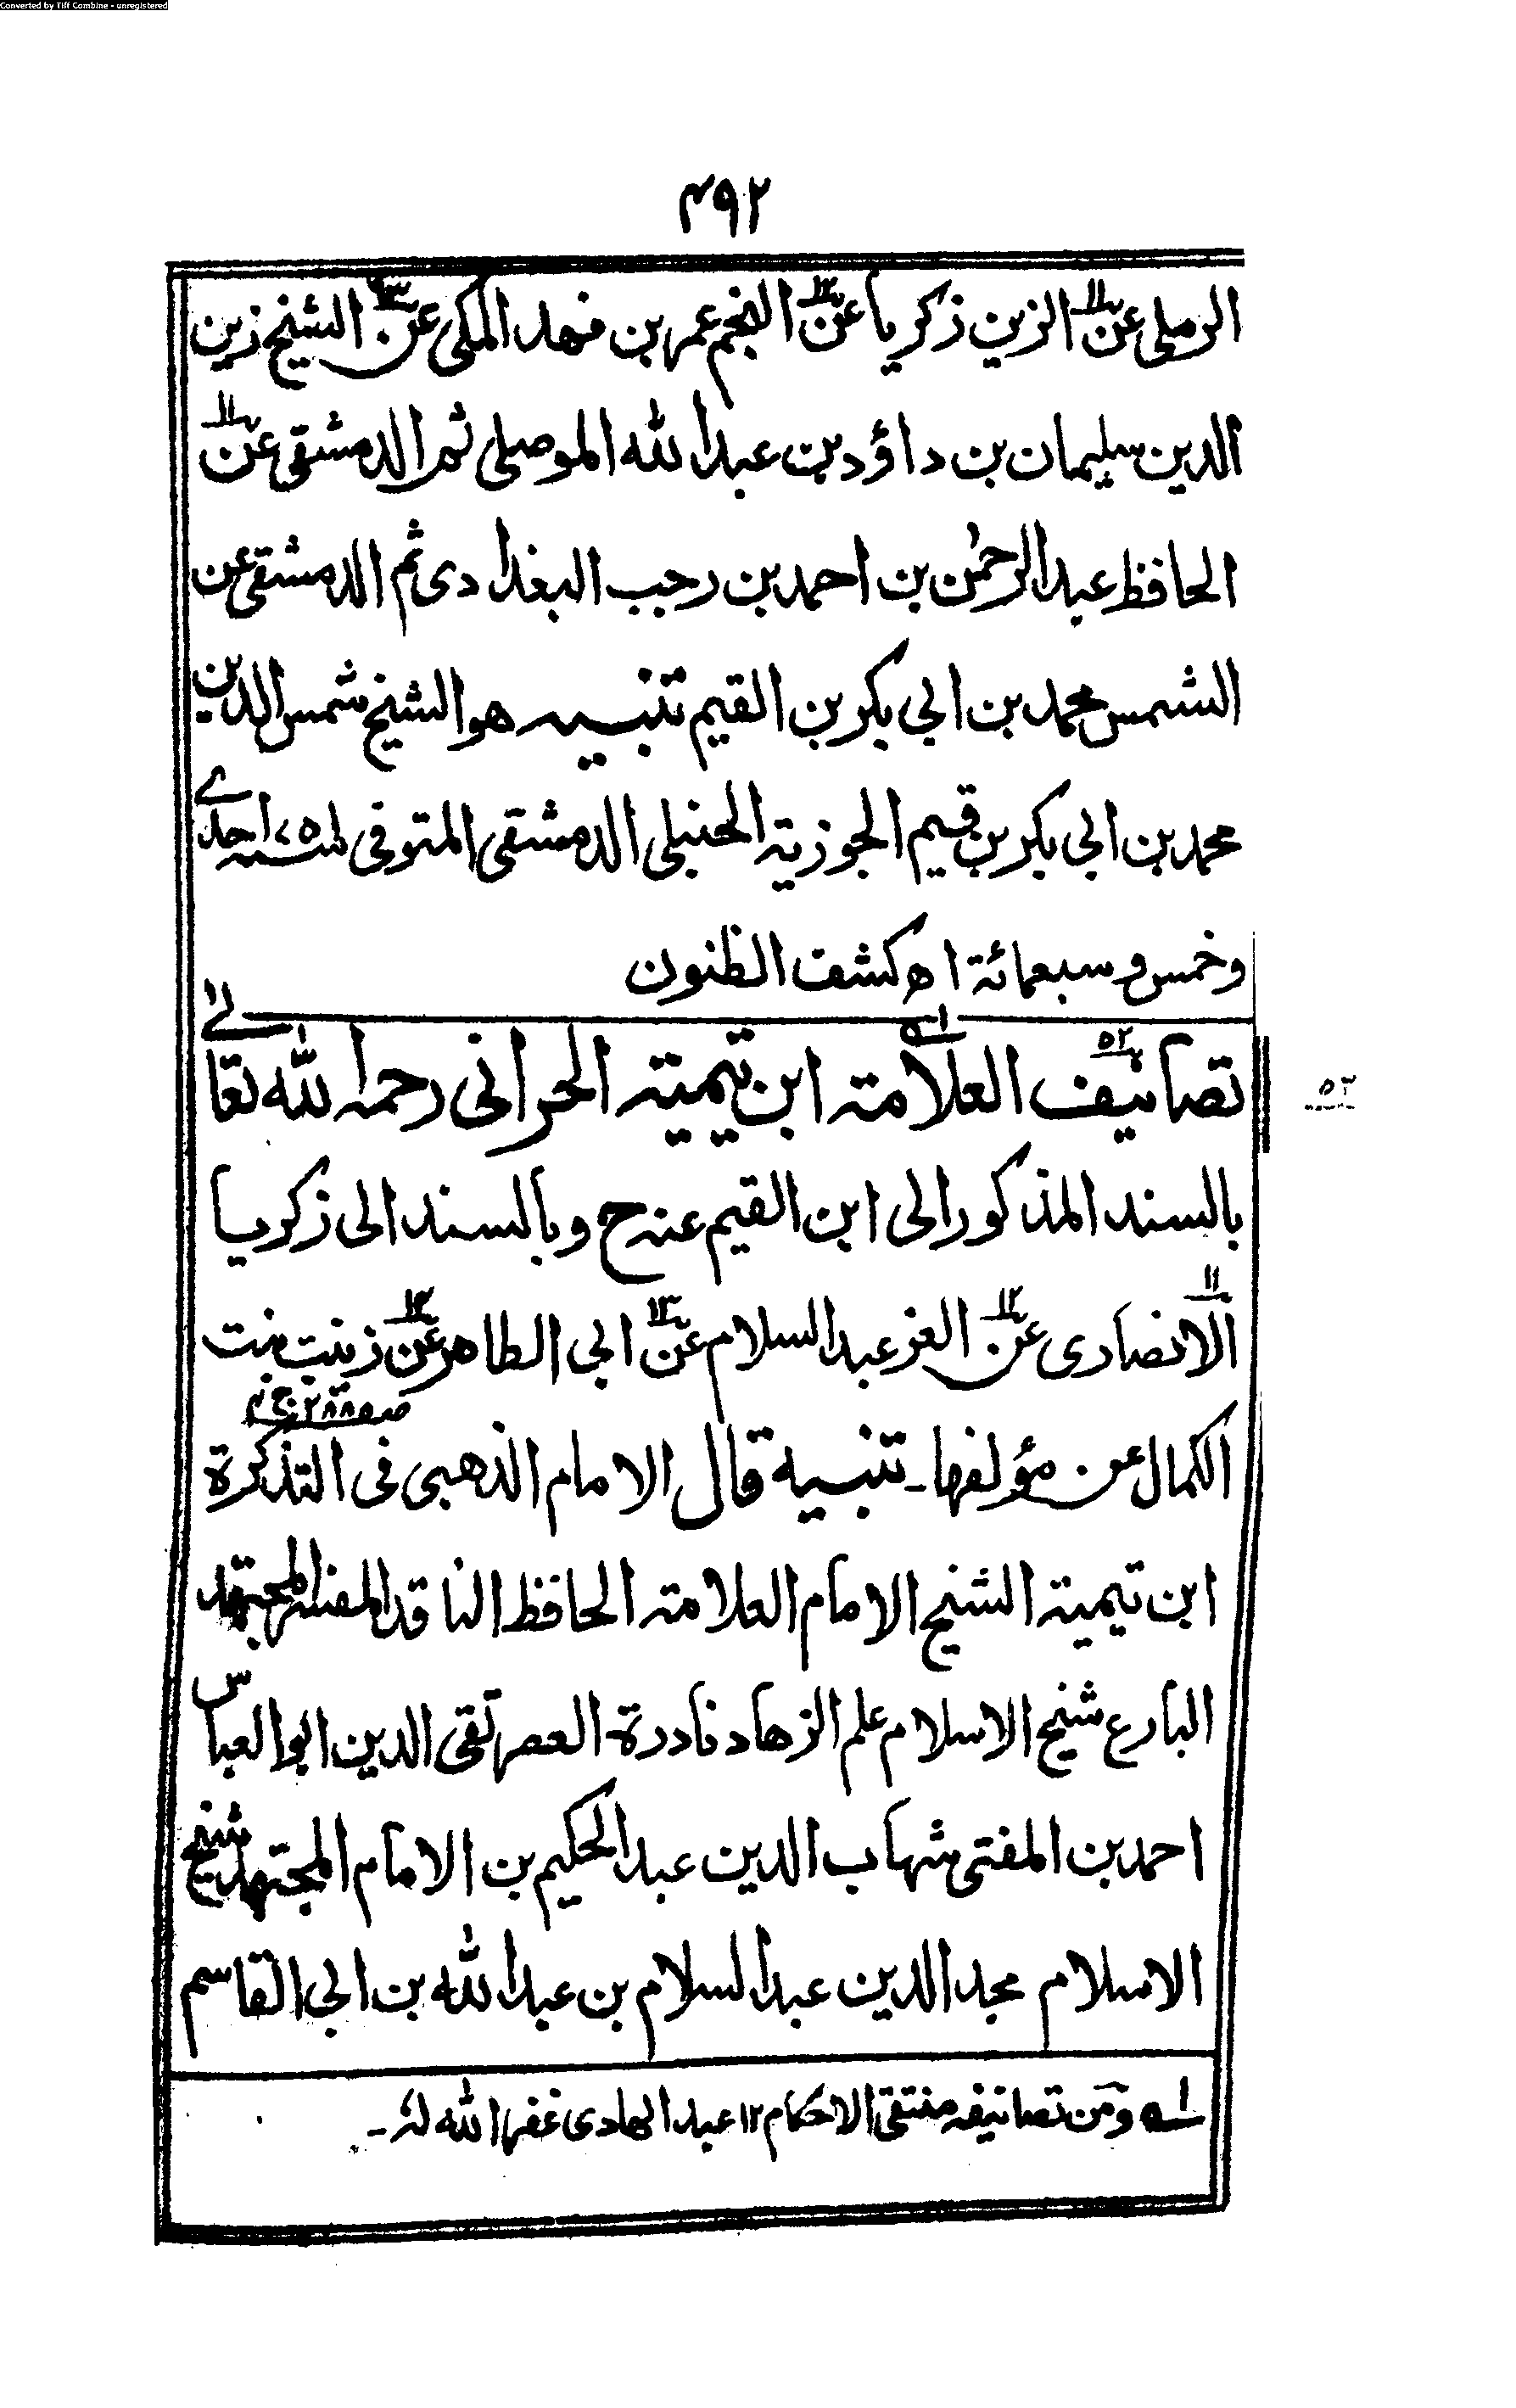 Converted by Tiff Combine - unregistered
۴۹۲
الرملی عن۱۱ الزین زکریا عن۱۲ النجم عمر بن فهد المکی عن۱۳ الشیخ زین
الدین سلیمان بن داؤد بن عبد الله الموصلی ثم الدمشقی عن۱۱
الحافظ عبد الرحمٰن بن احمد بن رجب البغدادی ثم الدمشقی عن
الشمس محمد بن ابی بکر بن القیم تنبیه هو الشیخ شمس الدین
محمد بن ابی بکر بن قیم الجوزیة الحنبلی الدمشقی المتوفی لسنه ۷۵۱ احدے
وخمس وسبعمائة اھ کشف الظنون
تصانیف۵۲ العلامة ابن تیمیة الحرانی رحمه الله تعالےٰ
۵۲
بالسند المذکور الی ابن القیم عنه ح وبالسند الی زکریا
الانصاری۱۱ عن۱۲ العز عبد السلام عن۱۳ ابی الطاهر عن۱۴ زینب بنت
الکمال عن مؤلفها۔ تنبیه قال الامام الذهبی فی التذکرة صـ۲۸۸ ج ۴
ابن تیمیة الشیخ الامام العلامة الحافظ الناقد المفسر المجتهد
البارع شیخ الاسلام علم الزهاد نادرة العصر تقی الدین ابو العباس
احمد بن المفتی شهاب الدین عبد الحکیم بن الامام المجتهد شیخ
الاسلام مجد الدین عبد السلام بن عبد الله بن ابی القاسم
۱ه ومن تصانیفه منتقی الاحکام ۱۲ عبد الهادی غفر الله له۔